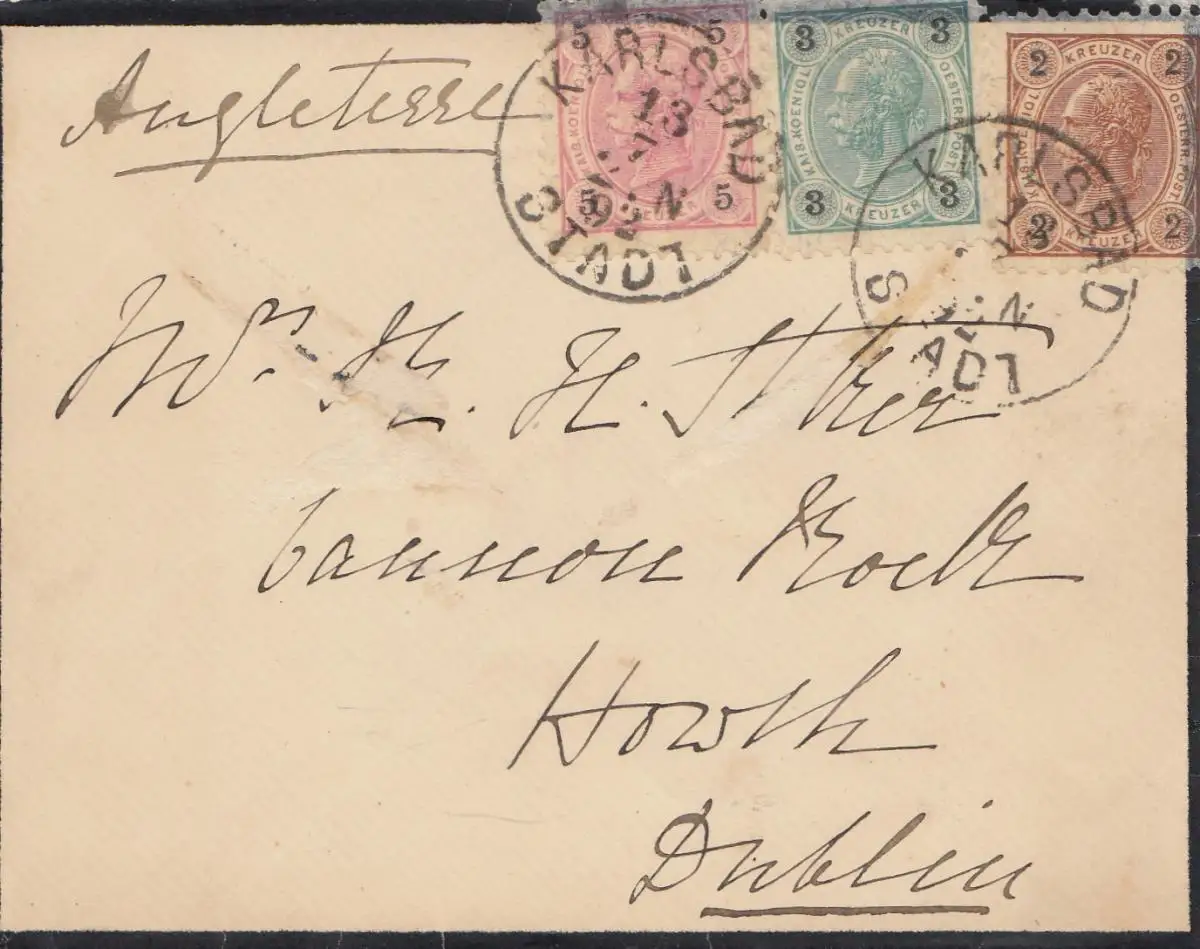 Angleterre
5 5
KAIS. KOENIGL
5 5
KREUZER
3 KREUZER 3
KAIS. KOENIGL OESTERR. POST
3 KREUZER 3
2 KREUZER 2
KAIS. KOENIGL OESTERR. POST
2 KREUZER 2
KARLSBAD
13
92
STADT
KARLSBAD
Mrs.
H.
Cannon Rock
Howth
Dublin